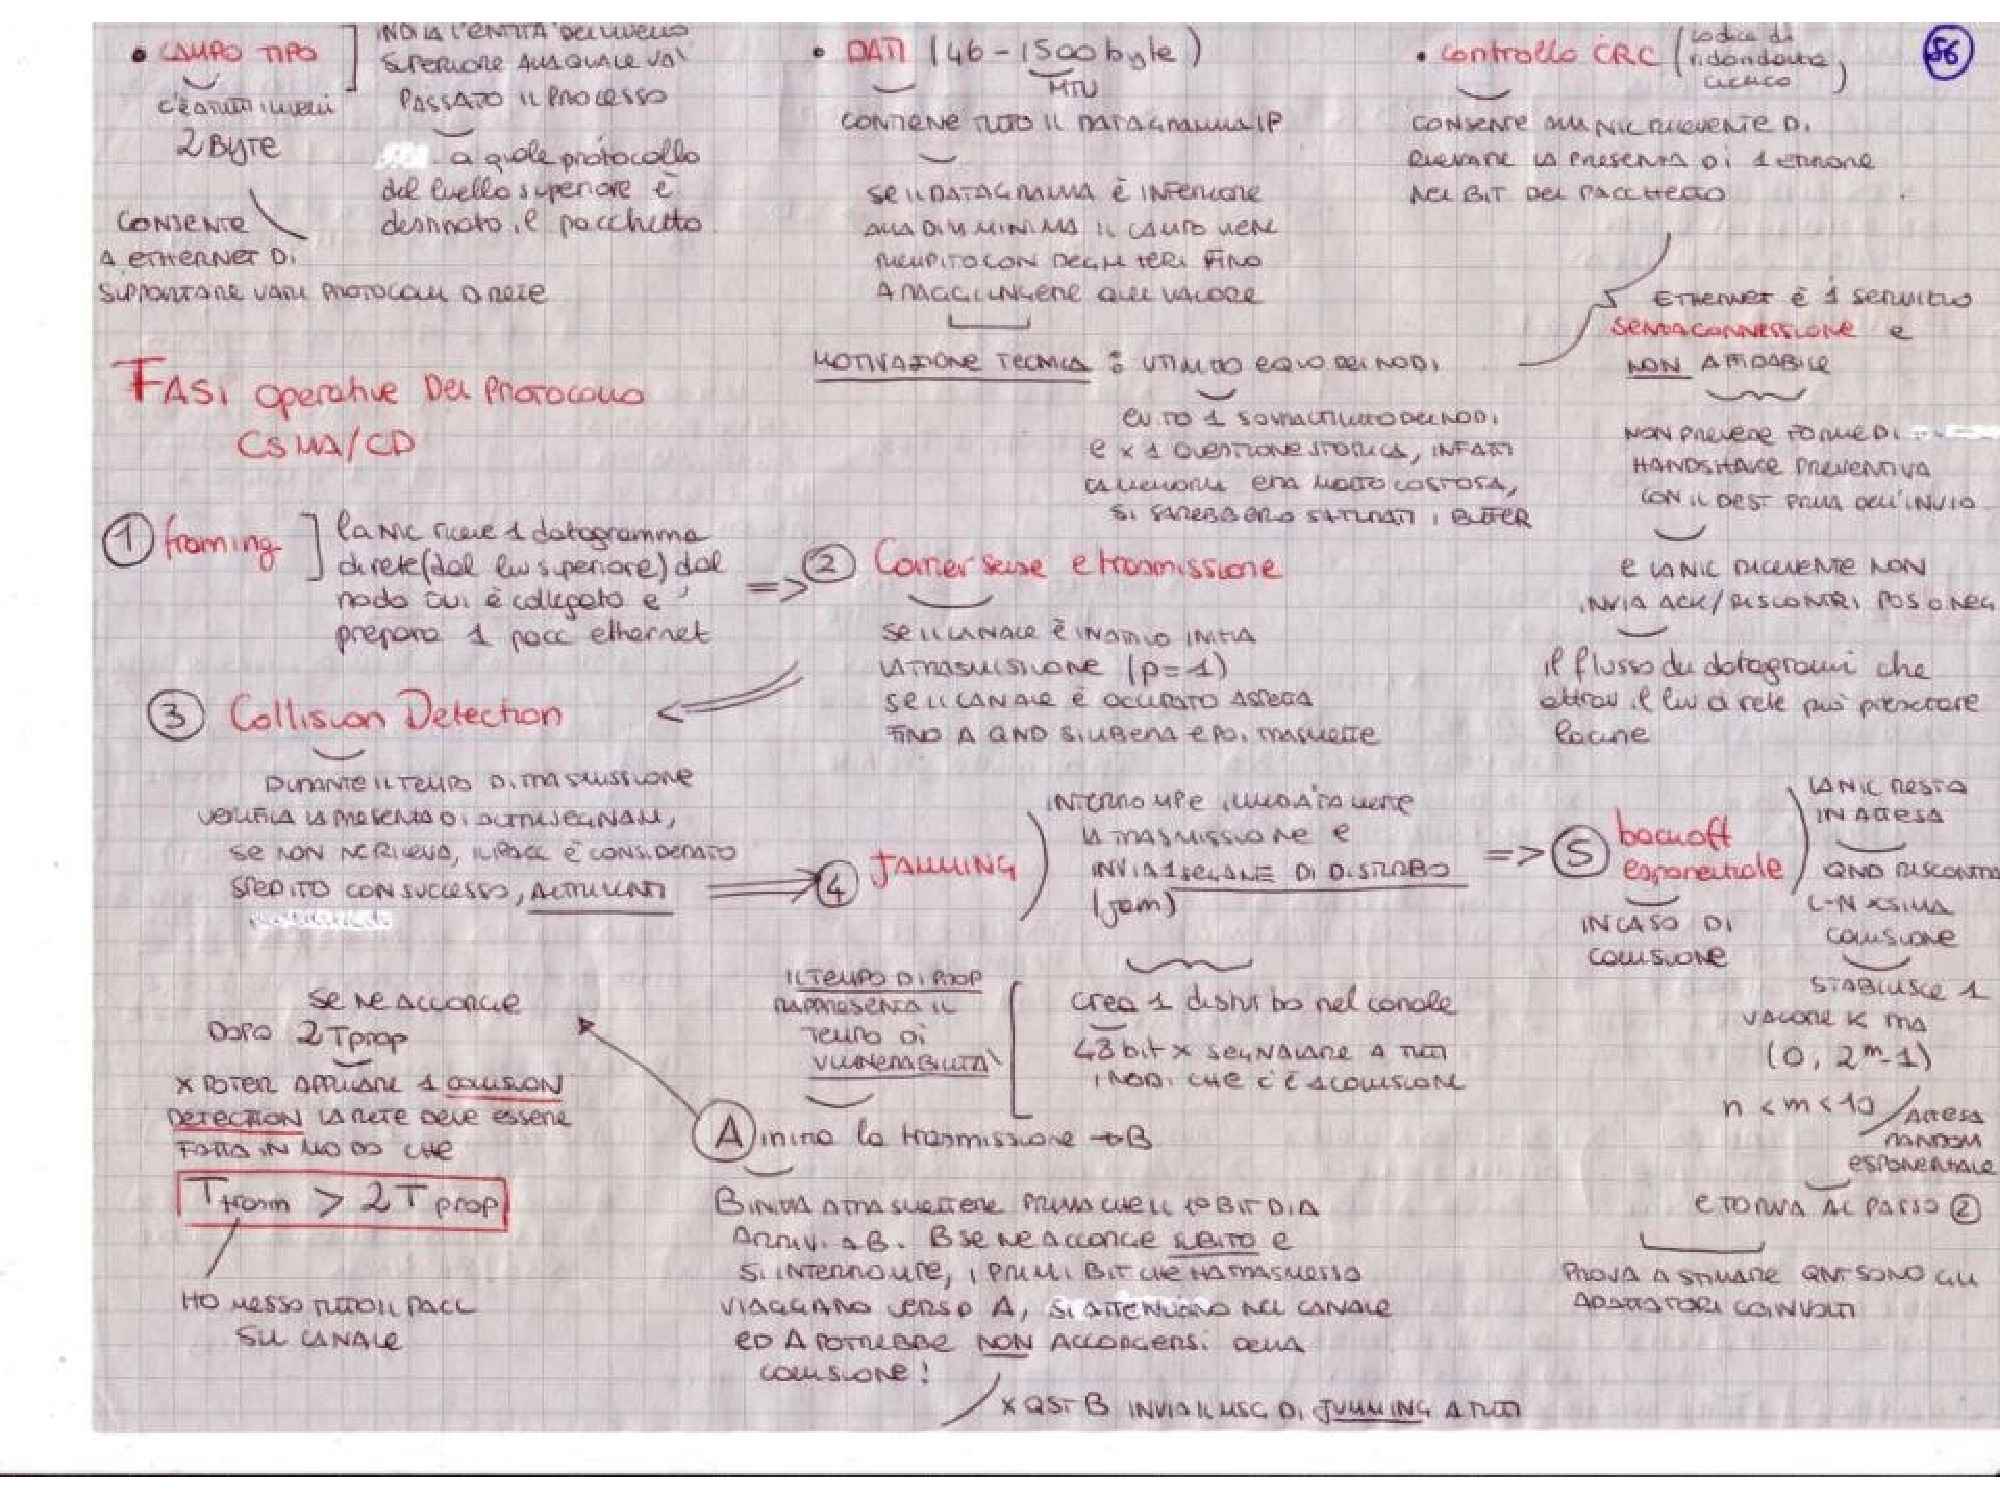 • CAMPO TIPO
2 BYTE
INDICA L'ENTITÀ DEL LIVELLO
SUPERIORE ALLA QUALE VA'
PASSATO IL PROCESSO
a quale protocollo
del livello superiore è
destinato il pacchetto
CONSENTE
A ETHERNET DI
SUPPORTARE VARI PROTOCOLLI DI RETE
• DATI (46 - 1500 byte)
MTU
CONTIENE TUTTO IL DATAGRAMMA IP
SE IL DATAGRAMMA È INFERIORE
ALLA DIM MINIMA IL CAMPO VIENE
RIEMPITO CON DEGLI ZERI FINO
A RAGGIUNGERE QUEL VALORE
MOTIVAZIONE TECNICA : UTILIZZO EQUO DEI NODI
EVITO 1 SOVRAUTILIZZO DEI NODI
E X 1 QUESTIONE STORICA, INFATTI
LA MEMORIA ERA MOLTO COSTOSA,
SI SAREBBERO SATURATI I BUFFER
• controllo CRC (codice di
ridondanza
ciclico)
56
CONSENTE ALLA NIC RICEVENTE DI
RILEVARE LA PRESENZA DI 1 ERRORE
NEI BIT DEL PACCHETTO
ETHERNET È 1 SERVIZIO
SENZA CONNESSIONE e
NON AFFIDABILE
NON PREVEDE FORME DI
HANDSHAKE PREVENTIVA
CON IL DEST PRIMA DELL'INVIO
E LA NIC RICEVENTE NON
INVIA ACK/RISCONTRI POS O NEG
il flusso di datagrammi che
attrav il liv di rete può presentare
lacune
FASI operative DEL PROTOCOLLO
CSMA/CD
1 framing
la NIC riceve 1 datagramma
di rete (dal liv superiore) dal
nodo cui è collegato e
prepara 1 pacc ethernet
=> 2 Carrier sense e trasmissione
SE IL CANALE È INATTIVO INIZIA
LA TRASMISSIONE (p=1)
SE IL CANALE È OCCUPATO ASPETTA
FINO A QND SI LIBERA E POI TRASMETTE
3 Collision Detection
DURANTE IL TEMPO DI TRASMISSIONE
VERIFICA LA PRESENZA DI ALTRI SEGNALI,
SE NON NE RILEVA, IL PACC È CONSIDERATO
SPEDITO CON SUCCESSO, ALTRIMENTI
4 JAMMING
INTERROMPE IMMEDIATAMENTE
LA TRASMISSIONE E
INVIA 1 SEGNALE DI DISTURBO
(jam)
crea 1 disturbo nel canale
48 bit X SEGNALARE A TUTTI
I NODI CHE C'È 1 COLLISIONE
=> 5 backoff
esponenziale
IN CASO DI
COLLISIONE
LA NIC RESTA
IN ATTESA
QND RISCONTRA
L'N-XSIMA
COLLISIONE
STABILISCE 1
VALORE K TRA
(0, 2^m-1)
n < m < 10
ATTESA
RANDOM
ESPONENZIALE
E TORNA AL PASSO 2
PROVA A STIMARE QNT SONO GLI
ADATTATORI COINVOLTI
IL TEMPO DI PROP
RAPPRESENTA IL
TEMPO DI
VULNERABILITÀ
SE NE ACCORGE
DOPO 2 Tprop
X POTER APPLICARE 1 COLLISION
DETECTION LA RETE DEVE ESSERE
FATTA IN MODO CHE
Ttrasm > 2 T prop
HO MESSO TUTTO IL PACC
SUL CANALE
A inizia la trasmissione → B
B INIZIA A TRASMETTERE PRIMA CHE IL 1° BIT DI A
ARRIVI A B. B SE NE ACCORGE SUBITO E
SI INTERROMPE, I PRIMI BIT CHE HA TRASMESSO
VIAGGIANO VERSO A, SI ATTENUANO NEL CANALE
ED A POTREBBE NON ACCORGERSI DELLA
COLLISIONE!
X QST B INVIA IL MSG DI JUMMING A TUTTI